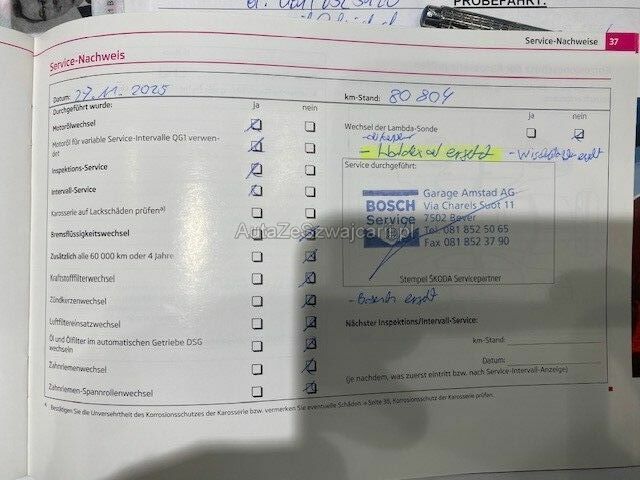 PROBEFAHRT:
Service-Nachweise 37
Service-Nachweis
Datum: 27.11.2025
km-Stand: 80 804
Durchgeführt wurde: Ja nein
Motorölwechsel
Motoröl für variable Service-Intervalle QG1 verwen-
det
Inspektions-Service
Intervall-Service
Karosserie auf Lackschäden prüfen a)
Bremsflüssigkeitswechsel
Zusätzlich alle 60 000 km oder 4 Jahre
Kraftstofffilterwechsel
Zündkerzenwechsel
Luftfiltereinsatzwechsel
Öl und Ölfilter im automatischen Getriebe DSG
wechseln
Zahnriemenwechsel
Zahnriemen-Spannrollenwechsel
Ja nein
Wechsel der Lambda-Sonde
- Haldex öl ersetzt
Service durchgeführt:
BOSCH
Service
Garage Amstad AG
Via Charels Suot 11
7502 Bever
Tel. 081 852 50 65
Fax 081 852 37 90
Stempel ŠKODA Servicepartner
Nächster Inspektions/Intervall-Service:
km-Stand:
Datum:
(je nachdem, was zuerst eintritt bzw. nach Service-Intervall-Anzeige)
a) Bestätigen Sie die Unversehrtheit des Korrosionsschutzes der Karosserie bzw. vermerken Sie eventuelle Schäden » Seite 38, Korrosionsschutz der Karosserie prüfen.
AutaZeSzwajcarii.pl